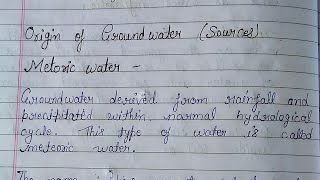 Origin of Groundwater (Sources)
Metoric water -
Groundwater derived from rainfall and
precpitated within normal hydrological
cycle. This type of water is called
meteoric water.
The name